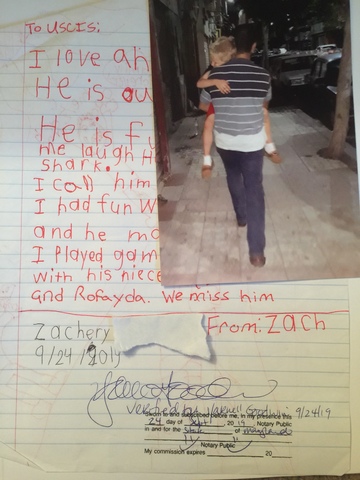 To USCIS:
I love ah
He is
He is f
me laugh H
shark.
I call him
I had fun W
and he ma
I played gam
with his niece
and Rofayda. We miss him
Zachery From: Zach
9/24/2019
verified by Goodwin 9/24/19
Sworn to and subscribed before me, in my presence this
24 day of Sept, 2019 Notary Public
in and for the State of Maryland
Notary Public
My commission expires 20